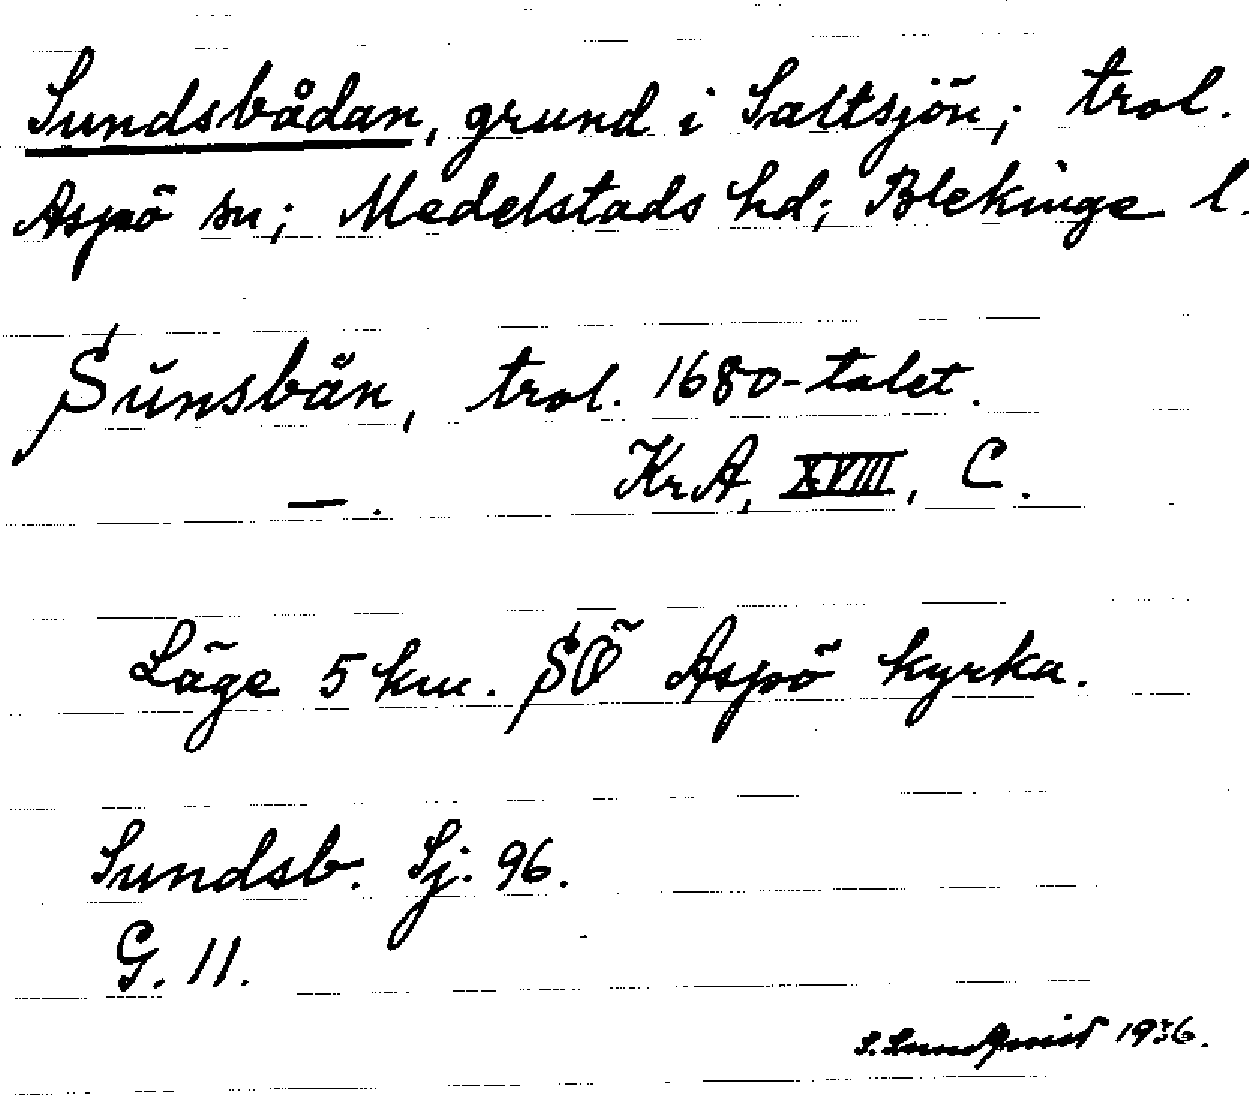 Sundsbådan, grund i Saltsjön; trol.
Aspö sn; Medelstads hd; Blekinge l.
Sunsbån, trol. 1680-talet.
— . KrA, XVIII, C.
Läge 5 km. SÖ Aspö kyrka.
Sundsb. Sj. 96.
G. 11.
S. Lundqvist 1936.